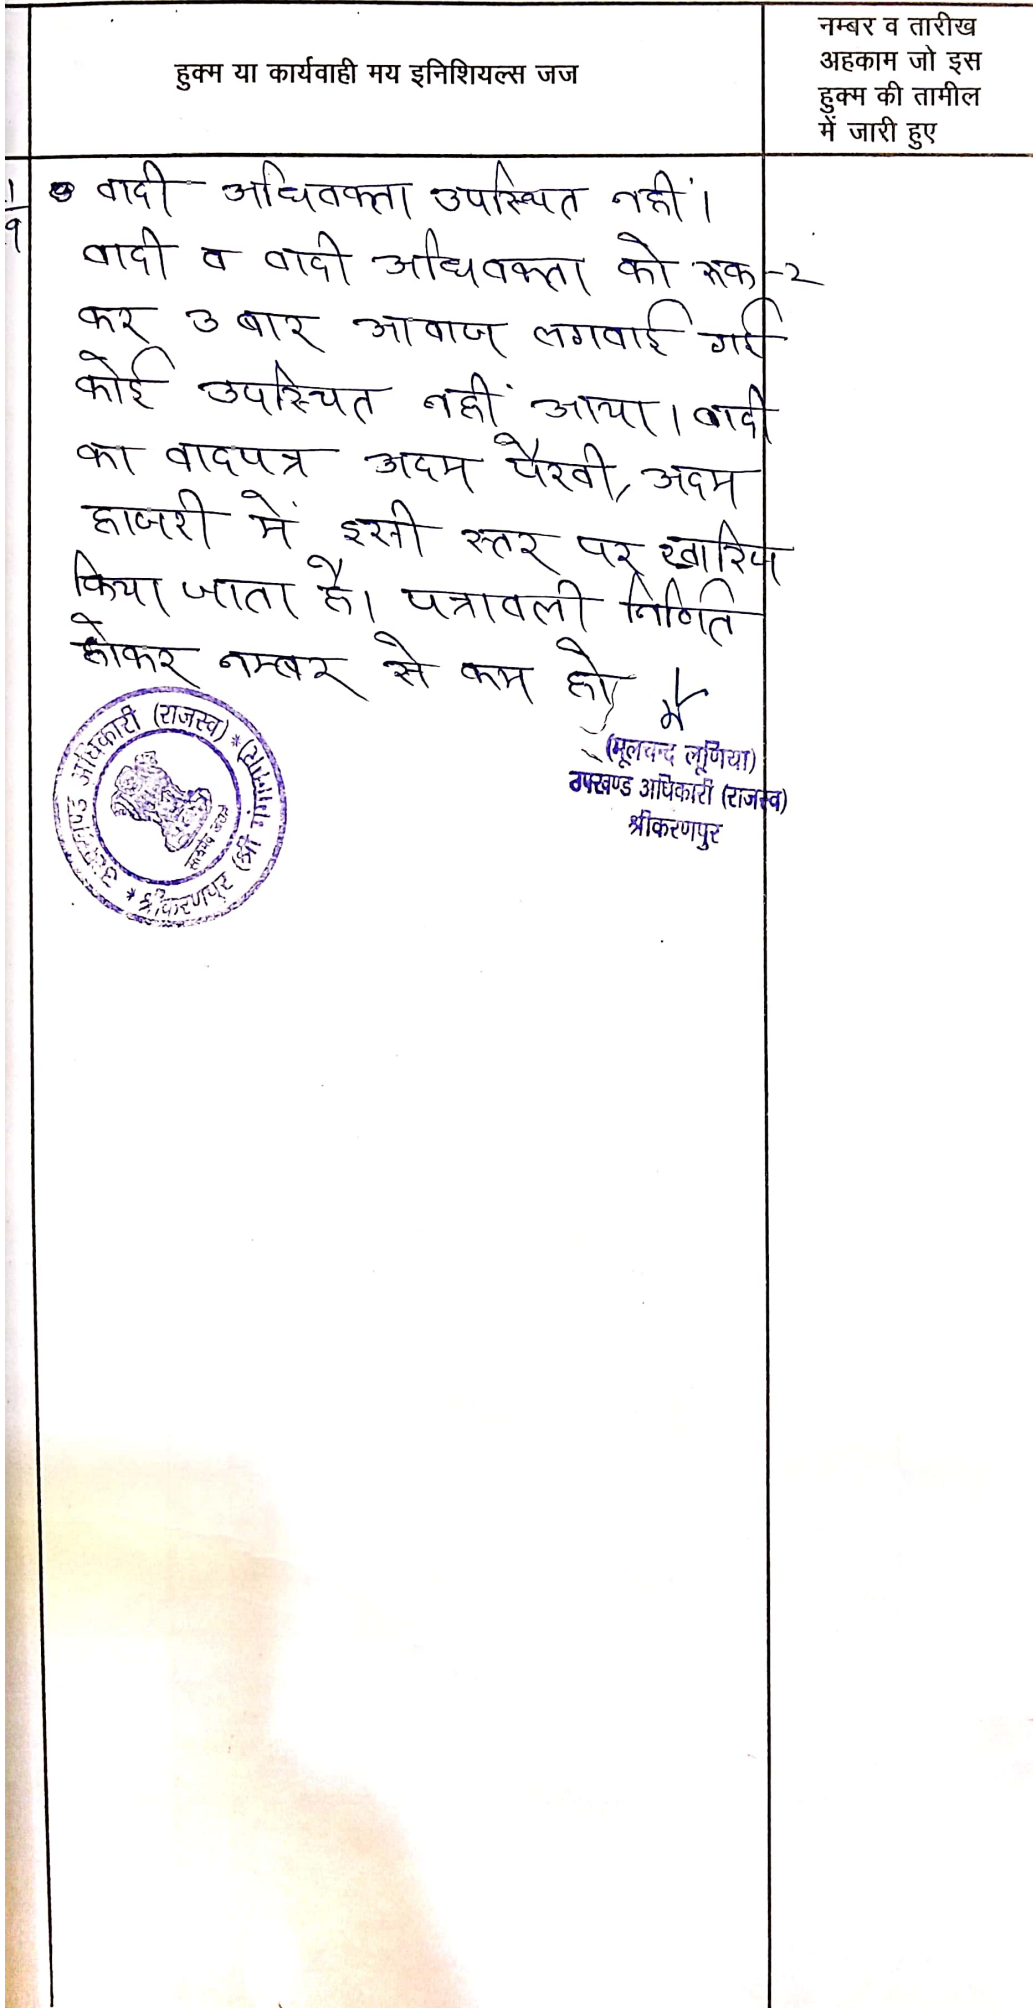 हुक्म या कार्यवाही मय इनिशियल्स जज
नम्बर व तारीख
अहकाम जो इस
हुक्म की तामील
में जारी हुए
वादी अधिवक्ता उपस्थित नहीं।
वादी व वादी अधिवक्ता को रूक-२
कर ३ बार आवाज लगवाई गई
कोई उपस्थित नहीं आया। वादी
का वादपत्र अदम पैरवी, अदम
हाजरी में इसी स्तर पर खारिज
किया जाता है। पत्रावली निर्णित
होकर नम्बर से कम हो
(मूलचन्द लूणिया)
उपखण्ड अधिकारी (राजस्व)
श्रीकरणपुर
उपखण्ड अधिकारी (राजस्व) * श्रीकरणपुर (श्री गंगानगर) *